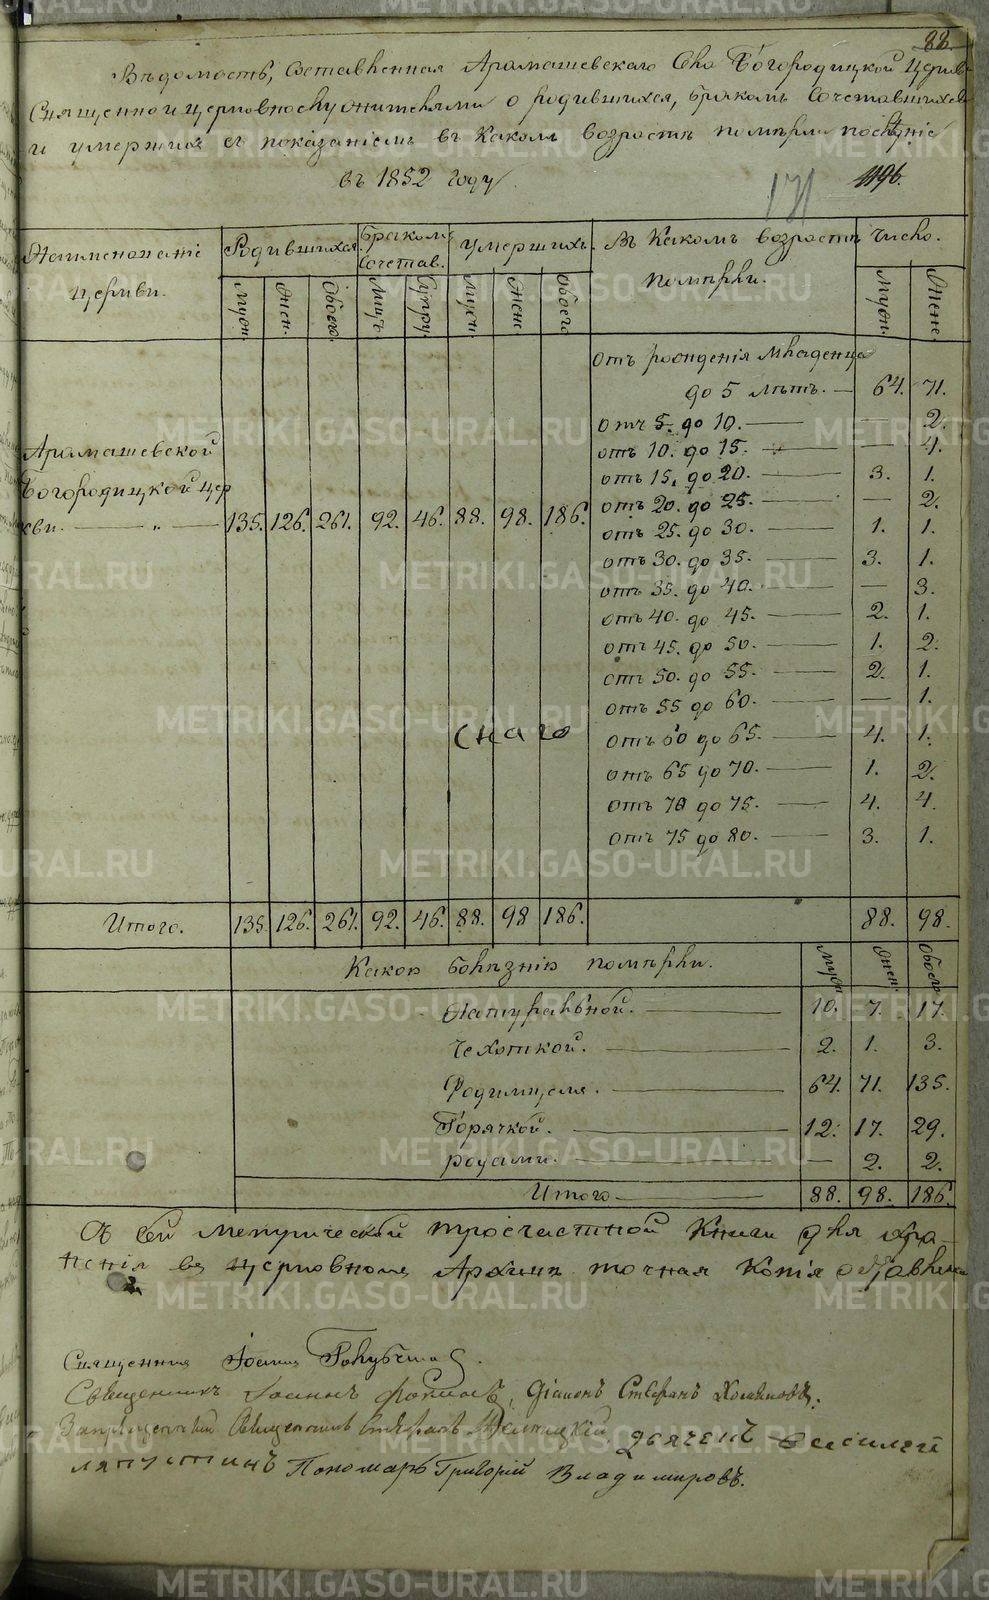 88.
Вѣдомость, Составленная Арамашевскаго Села Богородицкой Церкви
Священноцерковнослужителями о родившихся, бракомъ Сочетавшихся
и умершихъ съ показаніемъ въ какомъ возрастѣ померли послѣдніе
въ 1852 году.
171 1196.
Наименованіе церкви.
Родившихся. Бракомъ сочетав. Умершихъ. Въ какомъ возрастѣ померли. Число.
Мужс. Жен. Обоего. Лицъ. Супру. Мужс. Женс. Обоего Мужс. Женс.
отъ рожденія младенца
до 5 лѣтъ. — 64. 71.
отъ 5. до 10. — 2.
отъ 10. до 15. — 4.
отъ 15. до 20. — 3. 1.
отъ 20. до 25. — 2.
Арамашевской
Богородицкой цер
кви. — „ — 135. 126. 261. 92. 46. 88. 98. 186.
отъ 25. до 30. — 1. 1.
отъ 30. до 35. — 3. 1.
отъ 35. до 40. — 3.
отъ 40. до 45. — 2. 1.
отъ 45. до 50. — 1. 2.
отъ 50. до 55. — 2. 1.
отъ 55 до 60. — 1.
скаго
отъ 60 до 65. — 4. 1.
отъ 65 до 70. — 1. 2.
отъ 70 до 75. — 4. 4.
отъ 75 до 80. — 3. 1.
Итого. 135. 126. 261. 92. 46. 88. 98 186. 88. 98.
Какою болѣзнію померли. Мужс. Жен. Обоего
Натуральной. — 10. 7. 17.
Чехоткой. — 2. 1. 3.
Родимцемъ. — 64. 71. 135.
Горячкой. — 12. 17. 29.
родами. — 2. 2.
Итого — 88. 98. 186.
Съ сей метрической тросчастной Книги для хра-
ненія въ церковномъ Архивѣ точная копія оставлена
Священникъ Іоаннъ
Священникъ Іоаннъ Діаконъ Стефанъ Холмновъ.
Запрещенный Священникъ Стефанъ Дьячекъ Василей
Ляпустинъ Пономарь Григорій Владимировъ.
METRIKI.GASO-URAL.RU